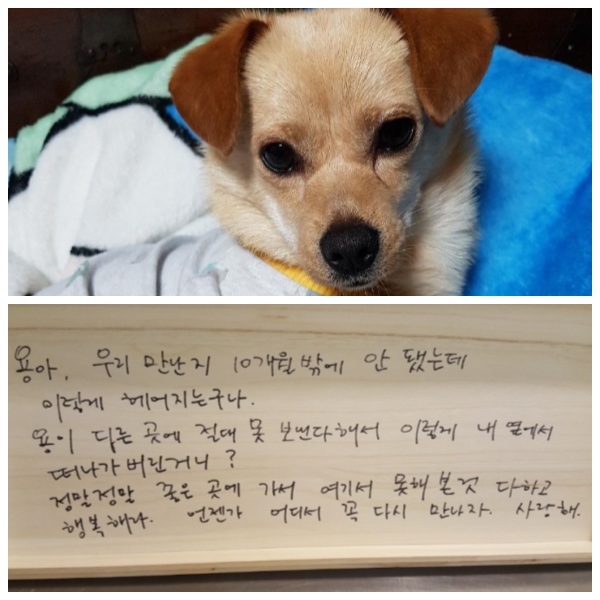 용아, 우리 만난지 10개월밖에 안 됐는데
이렇게 헤어지는구나.
용이 다른 곳에 절대 못 보낸다해서 이렇게 내 옆에서
떠나가 버린거니?
정말정말 좋은 곳에 가서 여기서 못해 본것 다하고
행복해라. 언젠가 어디서 꼭 다시 만나자. 사랑해.